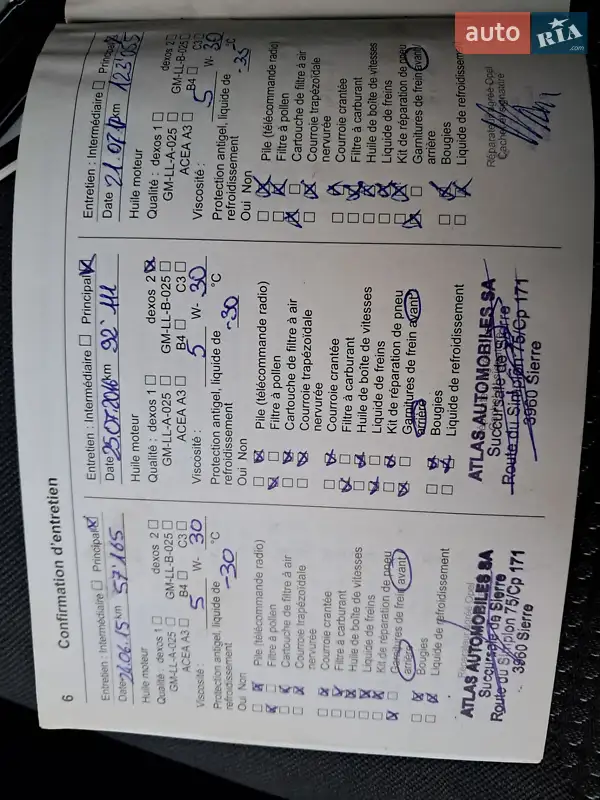 6
Confirmation d'entretien
Entretien : Intermédiaire Principal
Date 26.06.15 km 57'165
Huile moteur
Qualité : dexos 1 dexos 2
GM-LL-A-025 GM-LL-B-025
ACEA A3 B4 C3
Viscosité : 5 W- 30
Protection antigel, liquide de
refroidissement -30 °C
Oui Non
Pile (télécommande radio)
Filtre à pollen
Cartouche de filtre à air
Courroie trapézoïdale
nervurée
Courroie crantée
Filtre à carburant
Huile de boîte de vitesses
Liquide de freins
Kit de réparation de pneu
Garnitures de frein avant
arrière
Bougies
Liquide de refroidissement
ATLAS AUTOMOBILES SA
Succursale de Sierre
Route du Simplon 75/Cp 171
3960 Sierre
Entretien : Intermédiaire Principal
Date 25.07.2016 km 92'111
Huile moteur
Qualité : dexos 1 dexos 2
GM-LL-A-025 GM-LL-B-025
ACEA A3 B4 C3
Viscosité : 5 W- 30
Protection antigel, liquide de
refroidissement -30 °C
Oui Non
Pile (télécommande radio)
Filtre à pollen
Cartouche de filtre à air
Courroie trapézoïdale
nervurée
Courroie crantée
Filtre à carburant
Huile de boîte de vitesses
Liquide de freins
Kit de réparation de pneu
Garnitures de frein avant
arrière
Bougies
Liquide de refroidissement
ATLAS AUTOMOBILES SA
Succursale de Sierre
Route du Simplon 75/Cp 171
3960 Sierre
Entretien : Intermédiaire Principal
Date km
Huile moteur
Qualité : dexos 1 dexos 2
GM-LL-A-025 GM-LL-B-025
ACEA A3 B4 C3
Viscosité : 5 W- 30
Protection antigel, liquide de
refroidissement -35 °C
Oui Non
Pile (télécommande radio)
Filtre à pollen
Cartouche de filtre à air
Courroie trapézoïdale
nervurée
Courroie crantée
Filtre à carburant
Huile de boîte de vitesses
Liquide de freins
Kit de réparation de pneu
Garnitures de frein avant
arrière
Bougies
Liquide de refroidissement
Réparateur Agréé Opel
auto RIA
.com